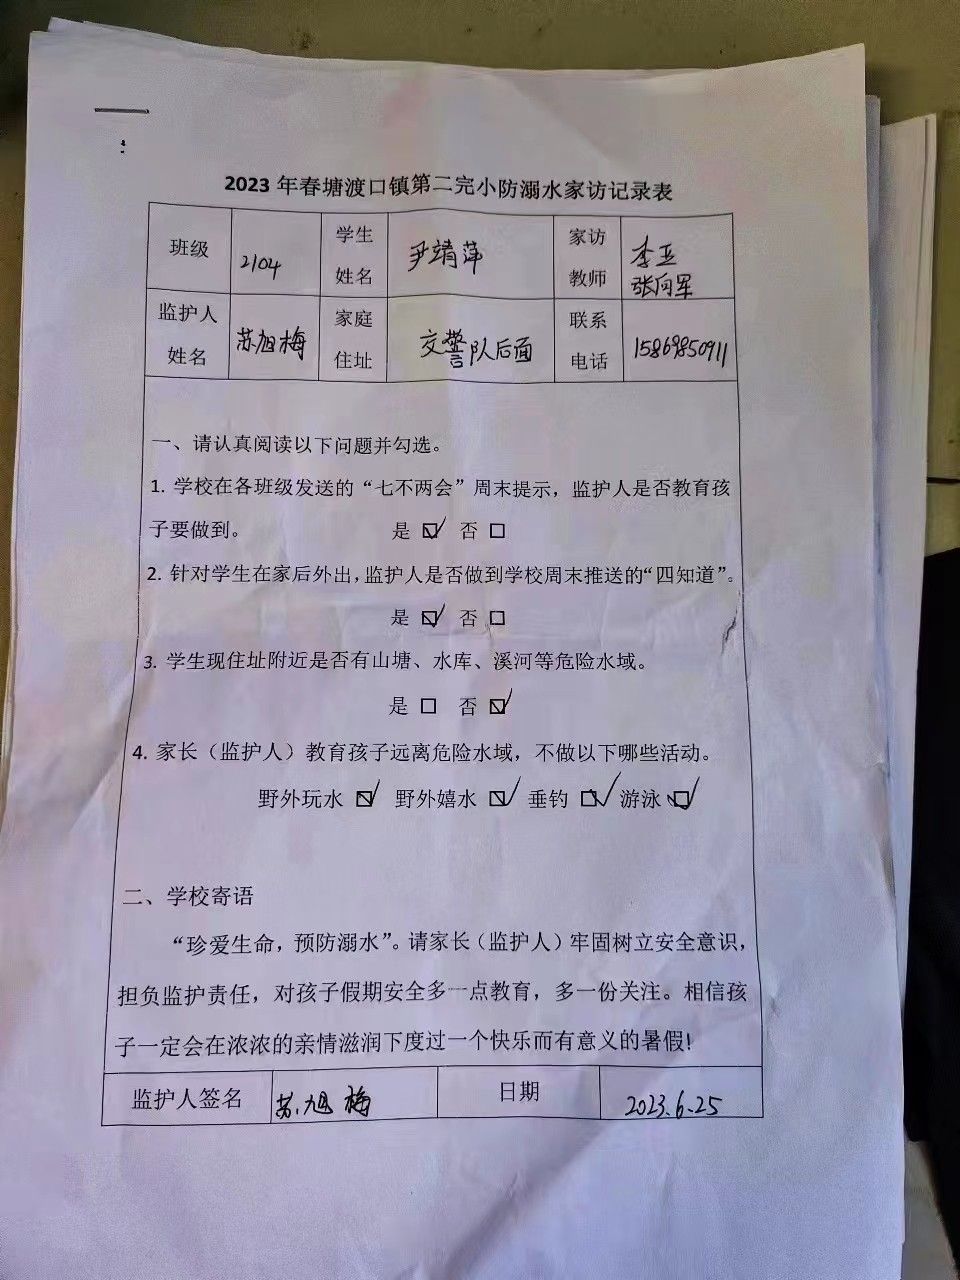 2023 年春塘渡口镇第二完小防溺水家访记录表
班级 2104 学生姓名 尹靖萍 家访教师 李亚 张向军
监护人姓名 苏旭梅 家庭住址 交警队后面 联系电话 15869850911
一、请认真阅读以下问题并勾选。
1. 学校在各班级发送的“七不两会”周末提示，监护人是否教育孩
子要做到。 是 ☑ 否 □
2. 针对学生在家后外出，监护人是否做到学校周末推送的“四知道”。
是 ☑ 否 □
3. 学生现住址附近是否有山塘、水库、溪河等危险水域。
是 □ 否 ☑
4. 家长（监护人）教育孩子远离危险水域，不做以下哪些活动。
野外玩水 ☑ 野外嬉水 ☑ 垂钓 ☑ 游泳 ☑
二、学校寄语
“珍爱生命，预防溺水”。请家长（监护人）牢固树立安全意识，
担负监护责任，对孩子假期安全多一点教育，多一份关注。相信孩
子一定会在浓浓的亲情滋润下度过一个快乐而有意义的暑假!
监护人签名 苏旭梅 日期 2023.6.25